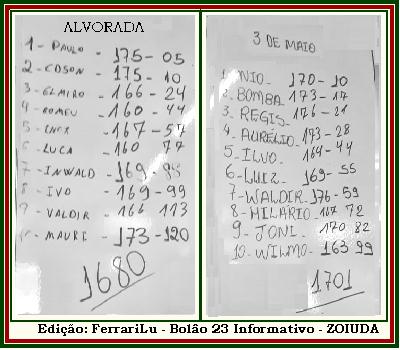 ALVORADA
1 - PAULO - 175 - 05
2 - EDSON - 175 - 10
3 - ELMIRO - 166 - 24
4 - ROMEU - 160 - 44
5 - INEX - 167 - 57
6 - LUCA - 160 77
7 - INWALD - 169 -
8 - IVO - 169 - 99
9 - VALDIR - 166 113
10 - MAURI - 173 - 120
1680
3 DE MAIO
1. NIO - 170 - 10
2. BOMBA 173 - 17
3. REGIS - 176 - 21
4. AURÉLIO - 173 - 28
5 - ILVO - 164 - 44
6 - LUIZ - 169 - 55
7 - WALDIR - 176 - 59
8 - HILÁRIO - 167 72
9 - JONI - 170 82
10. WILMO - 163 99
1701
Edição: FerrariLu - Bolão 23 Informativo - ZOIUDA